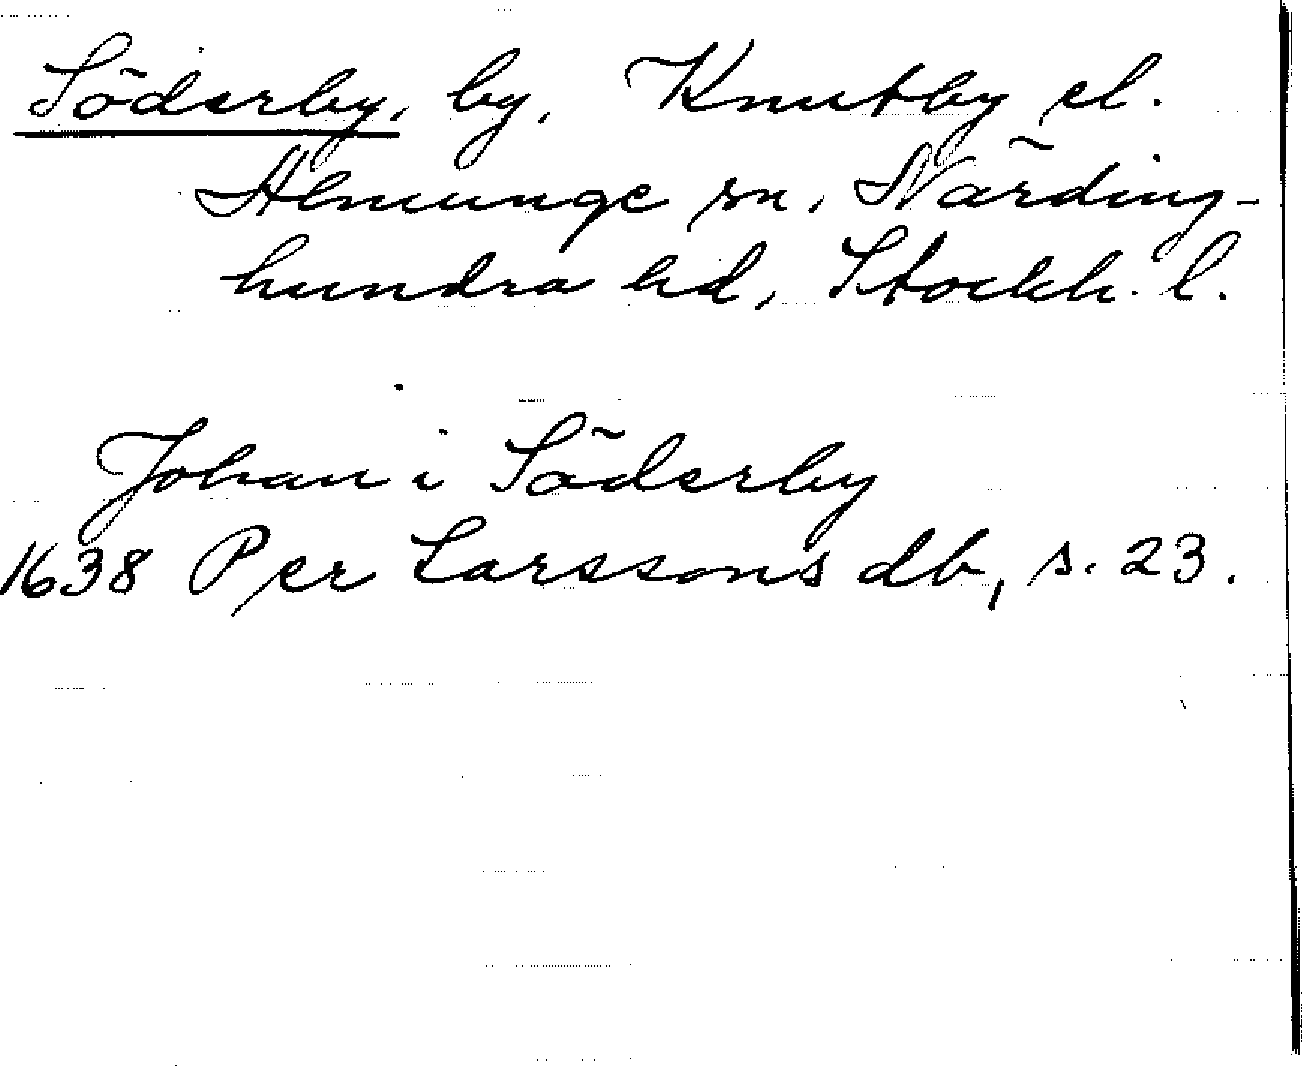 Söderby, by, Knutby el.
Almunge sn, Närding-
hundra hd, Stockh. l.
Johan i Söderby
1638 Per Larssons db, s. 23.